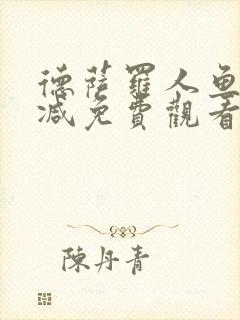 德薩羅人魚
減免費觀看
陳丹青